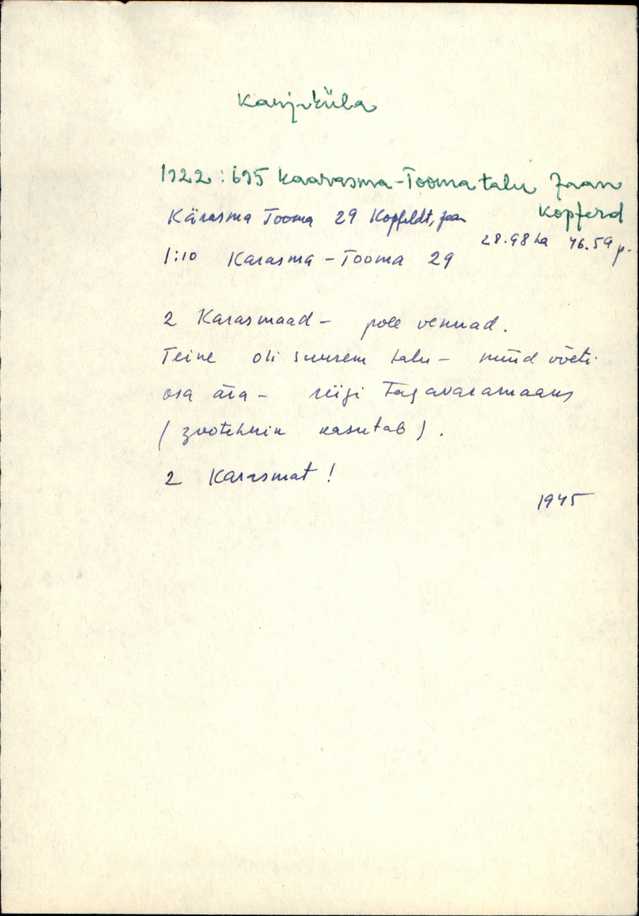 Karjaküla
1922: 695 Kaarasma-Tooma talu Jaan
Kopferd
Kärasma Tooma 29 Kopfeldt, Jaan
28.98 ha 46.59 p.
1:10 Karasma - Tooma 29
2 Karasmaad - pole vennad.
Teine oli suurem talu - nüüd võeti
osa ära - riigi Tagavaramaaks
(zootehnik kasutab).
2 Karasmat!
1945